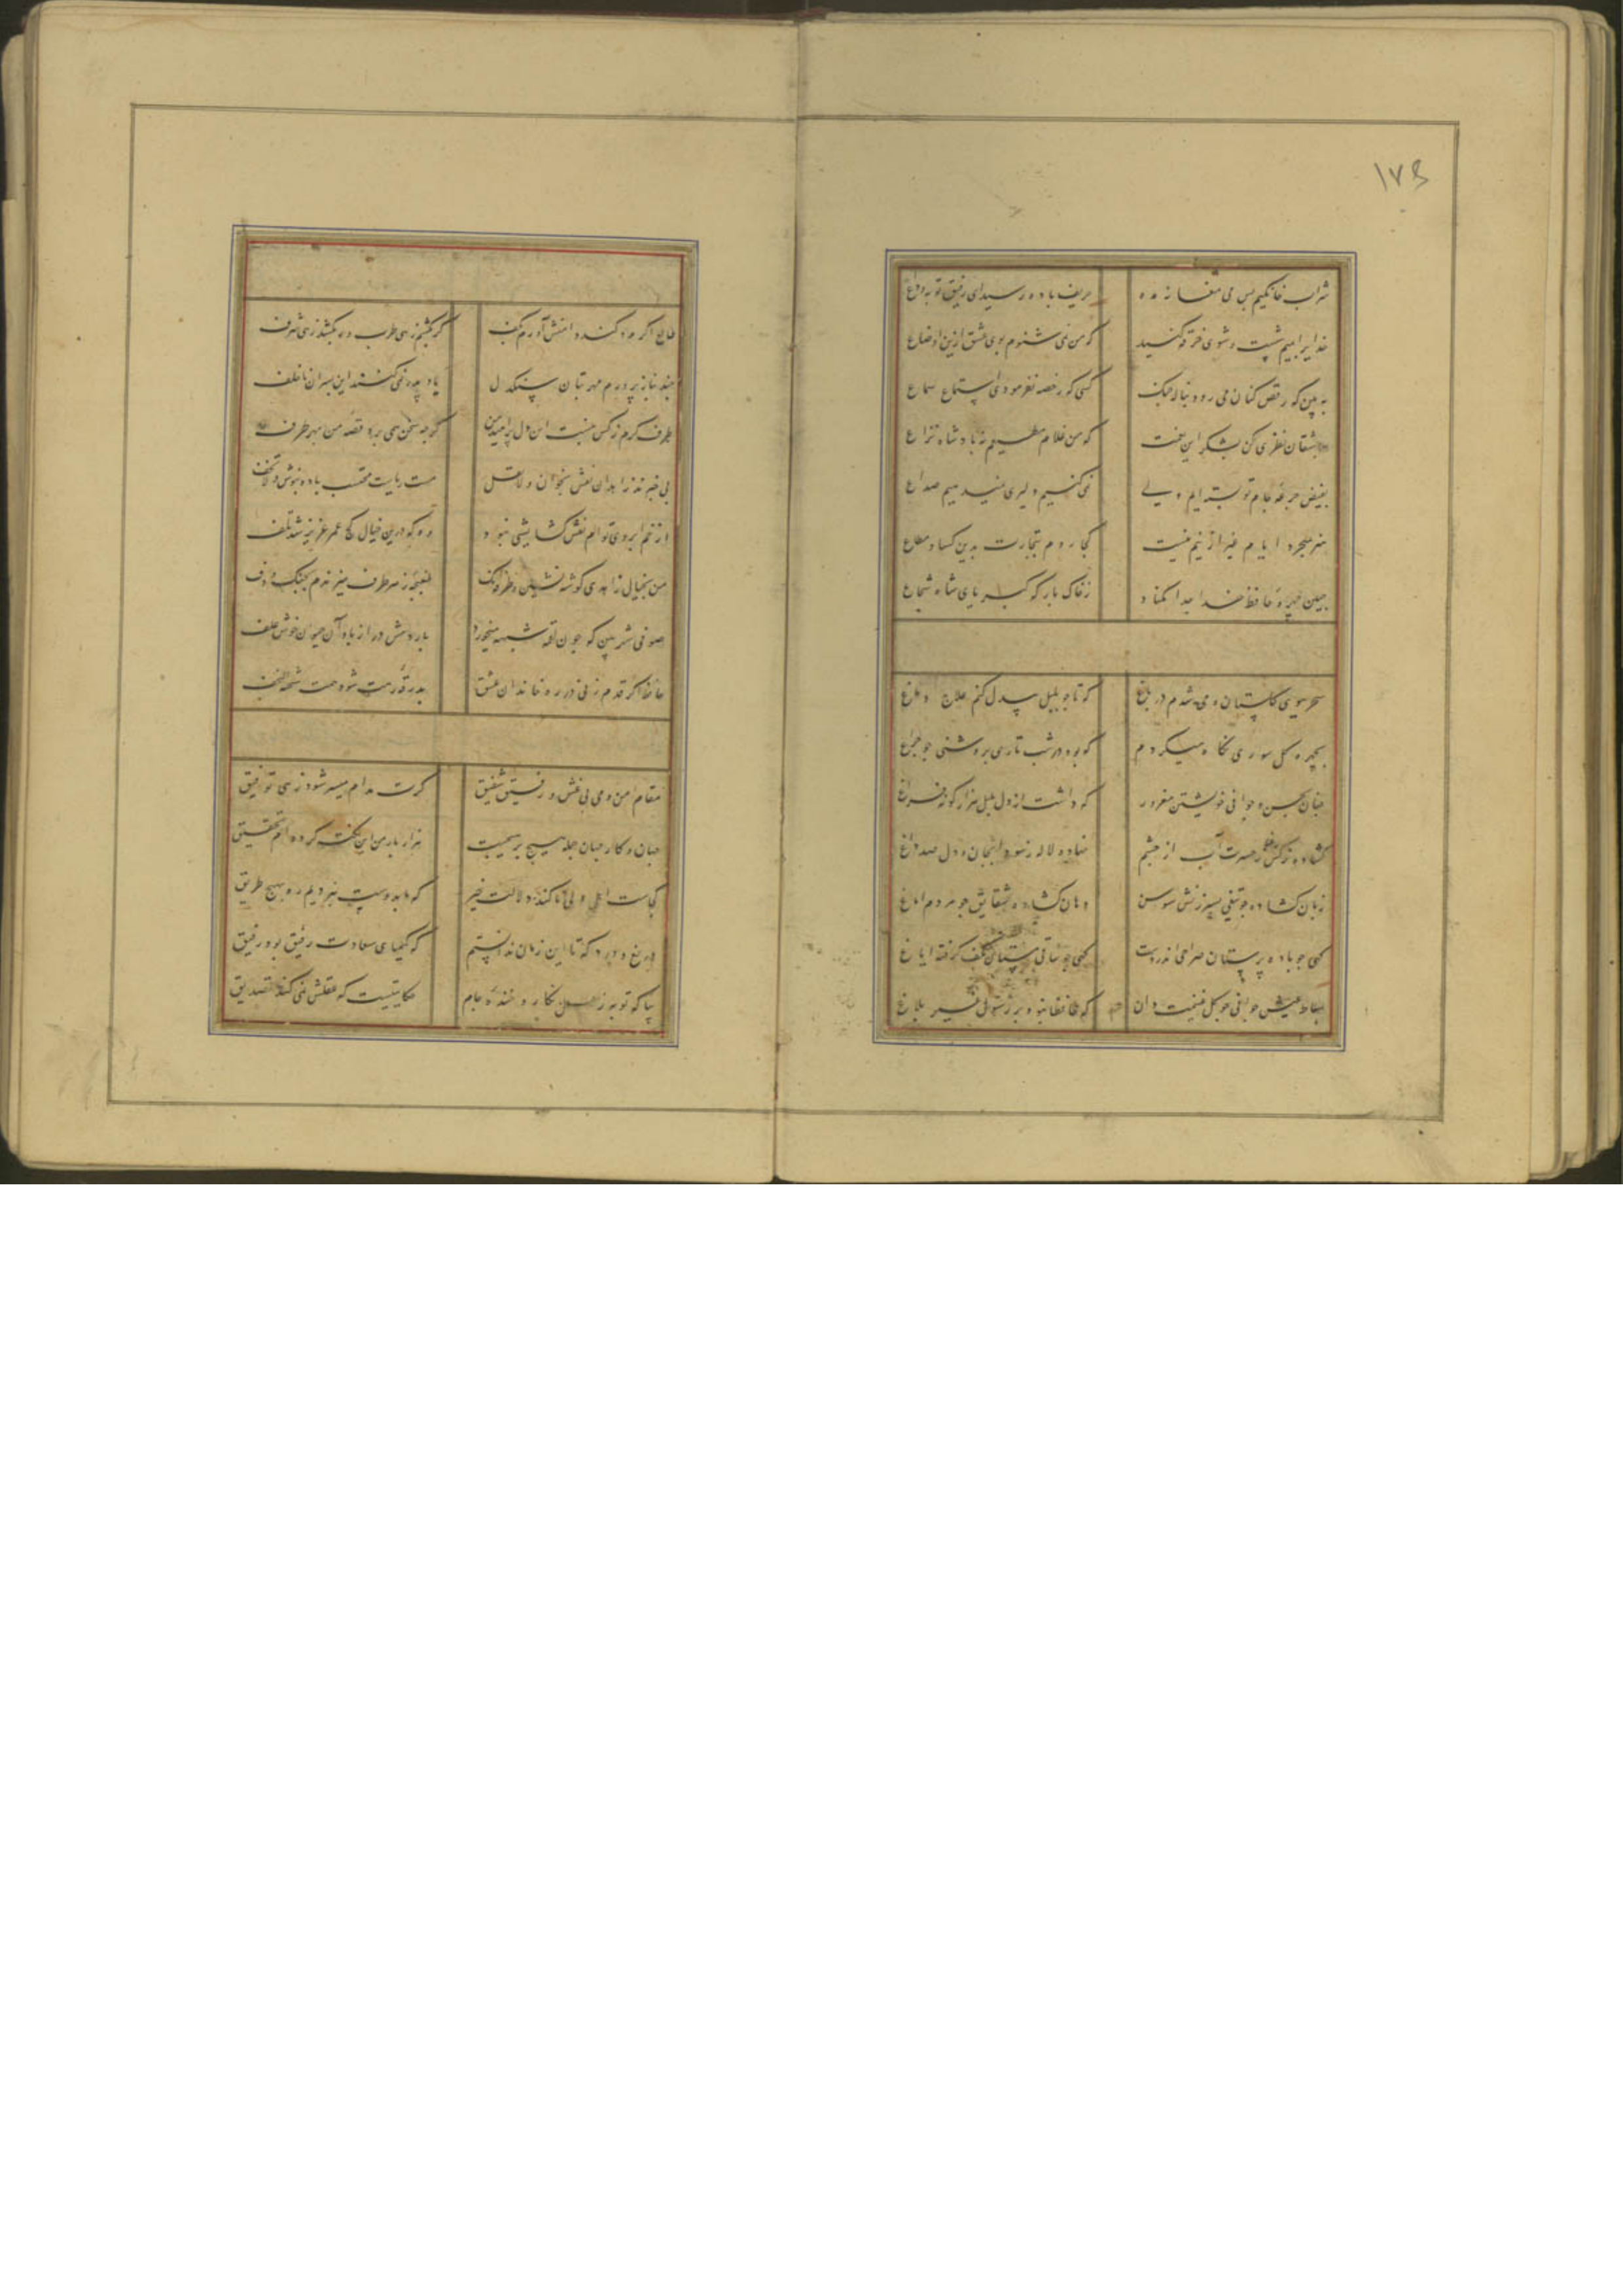 ۱۷۵
شراب خانگیم بس می مغانه ده حریف باده رسید ای رفیق توبه وداع
خدایرا بمیم شست و شوی خرقه کنید که من نمی شنوم بوی عشق ازین اوضاع
به بین که رقص کنان می رود بناله چنگ کسی که رخصه نفرمودی استماع سماع
بعاشقان نظری کن بشکر این نعمت که من غلام مطیعم تو بادشاه مطاع
بفیض جرعه جام تو تشنه ایم ولی نمی کنیم دلیری نمیدهیم صداع
هنر نمیخرد ایام غیر ازینم نیست کجا روم بتجارت بدین کساد متاع
جبین چهره حافظ خدا جدا مکناد ز خاک بارگه کبریای شاه شجاع
سحر ببوی گلستان دمی شدم در باغ که تا چو بلبل بیدل کنم علاج دماغ
بچهره گل سوری نگاه میکردم که بود در شب تاری بروشنی چو چراغ
چنان بحسن و جوانی خویشتن مغرور که داشت از دل بلبل هزار گونه فراغ
گشاده نرگس رعنا ز حسرت آب از چشم نهاده لاله ز سودا بجان و دل صد داغ
زبان کشاده چو تیغی بسرزنش سوسن دهان کشاده شقایق چو مردم ایغاغ
کهی چو باده پرستان صراحی اندر دست کهی چو ساقی مستان بکف گرفته ایاغ
نشاط عیش جوانی چو گل غنیمت دان که حافظا نبود بر رسول غیر بلاغ
طالع اگر مدد کند دامنش آورم بکف گر بکشم زهی طرب ور بکشد زهی شرف
چند بناز پرورم مهر بتان سنگدل یاد پدر نمی کنند این پسران ناخلف
طرف کرم ز کس نبست این دل پر امید من گرچه سخن همی برد قصه من بهر طرف
بی خبرند زاهدان نقش بخوان و لا تقل مست ریاست محتسب باده بنوش و لا تخف
از خم ابروی توام نقش کشایشی نبود وه که درین خیال کج عمر عزیز شد تلف
من بخیال زاهدی گوشه نشین و طرفه آنک مغبچه ز هر طرف میزندم بچنگ و دف
صوفی شهر بین که چون لقمه شبهه میخورد باردمش دراز باد آن حیوان خوش علف
حافظ اگر قدم زنی در ره خاندان عشق بدرقه رهت شود همت شحنه نجف
مقام امن و می بی غش و رفیق شفیق گرت مدام میسر شود زهی توفیق
جهان و کار جهان جمله هیچ بر هیچست هزار بار من این نکته کرده ام تحقیق
کجاست اهل دلی تا کند دلالت خیر که ما بدوست نبردیم ره بهیچ طریق
دریغ و درد که تا این زمان ندانستم که کیمیای سعادت رفیق بود رفیق
بیا که توبه ز لعل نگار و خنده جام حکایتیست که عقلش نمی کند تصدیق